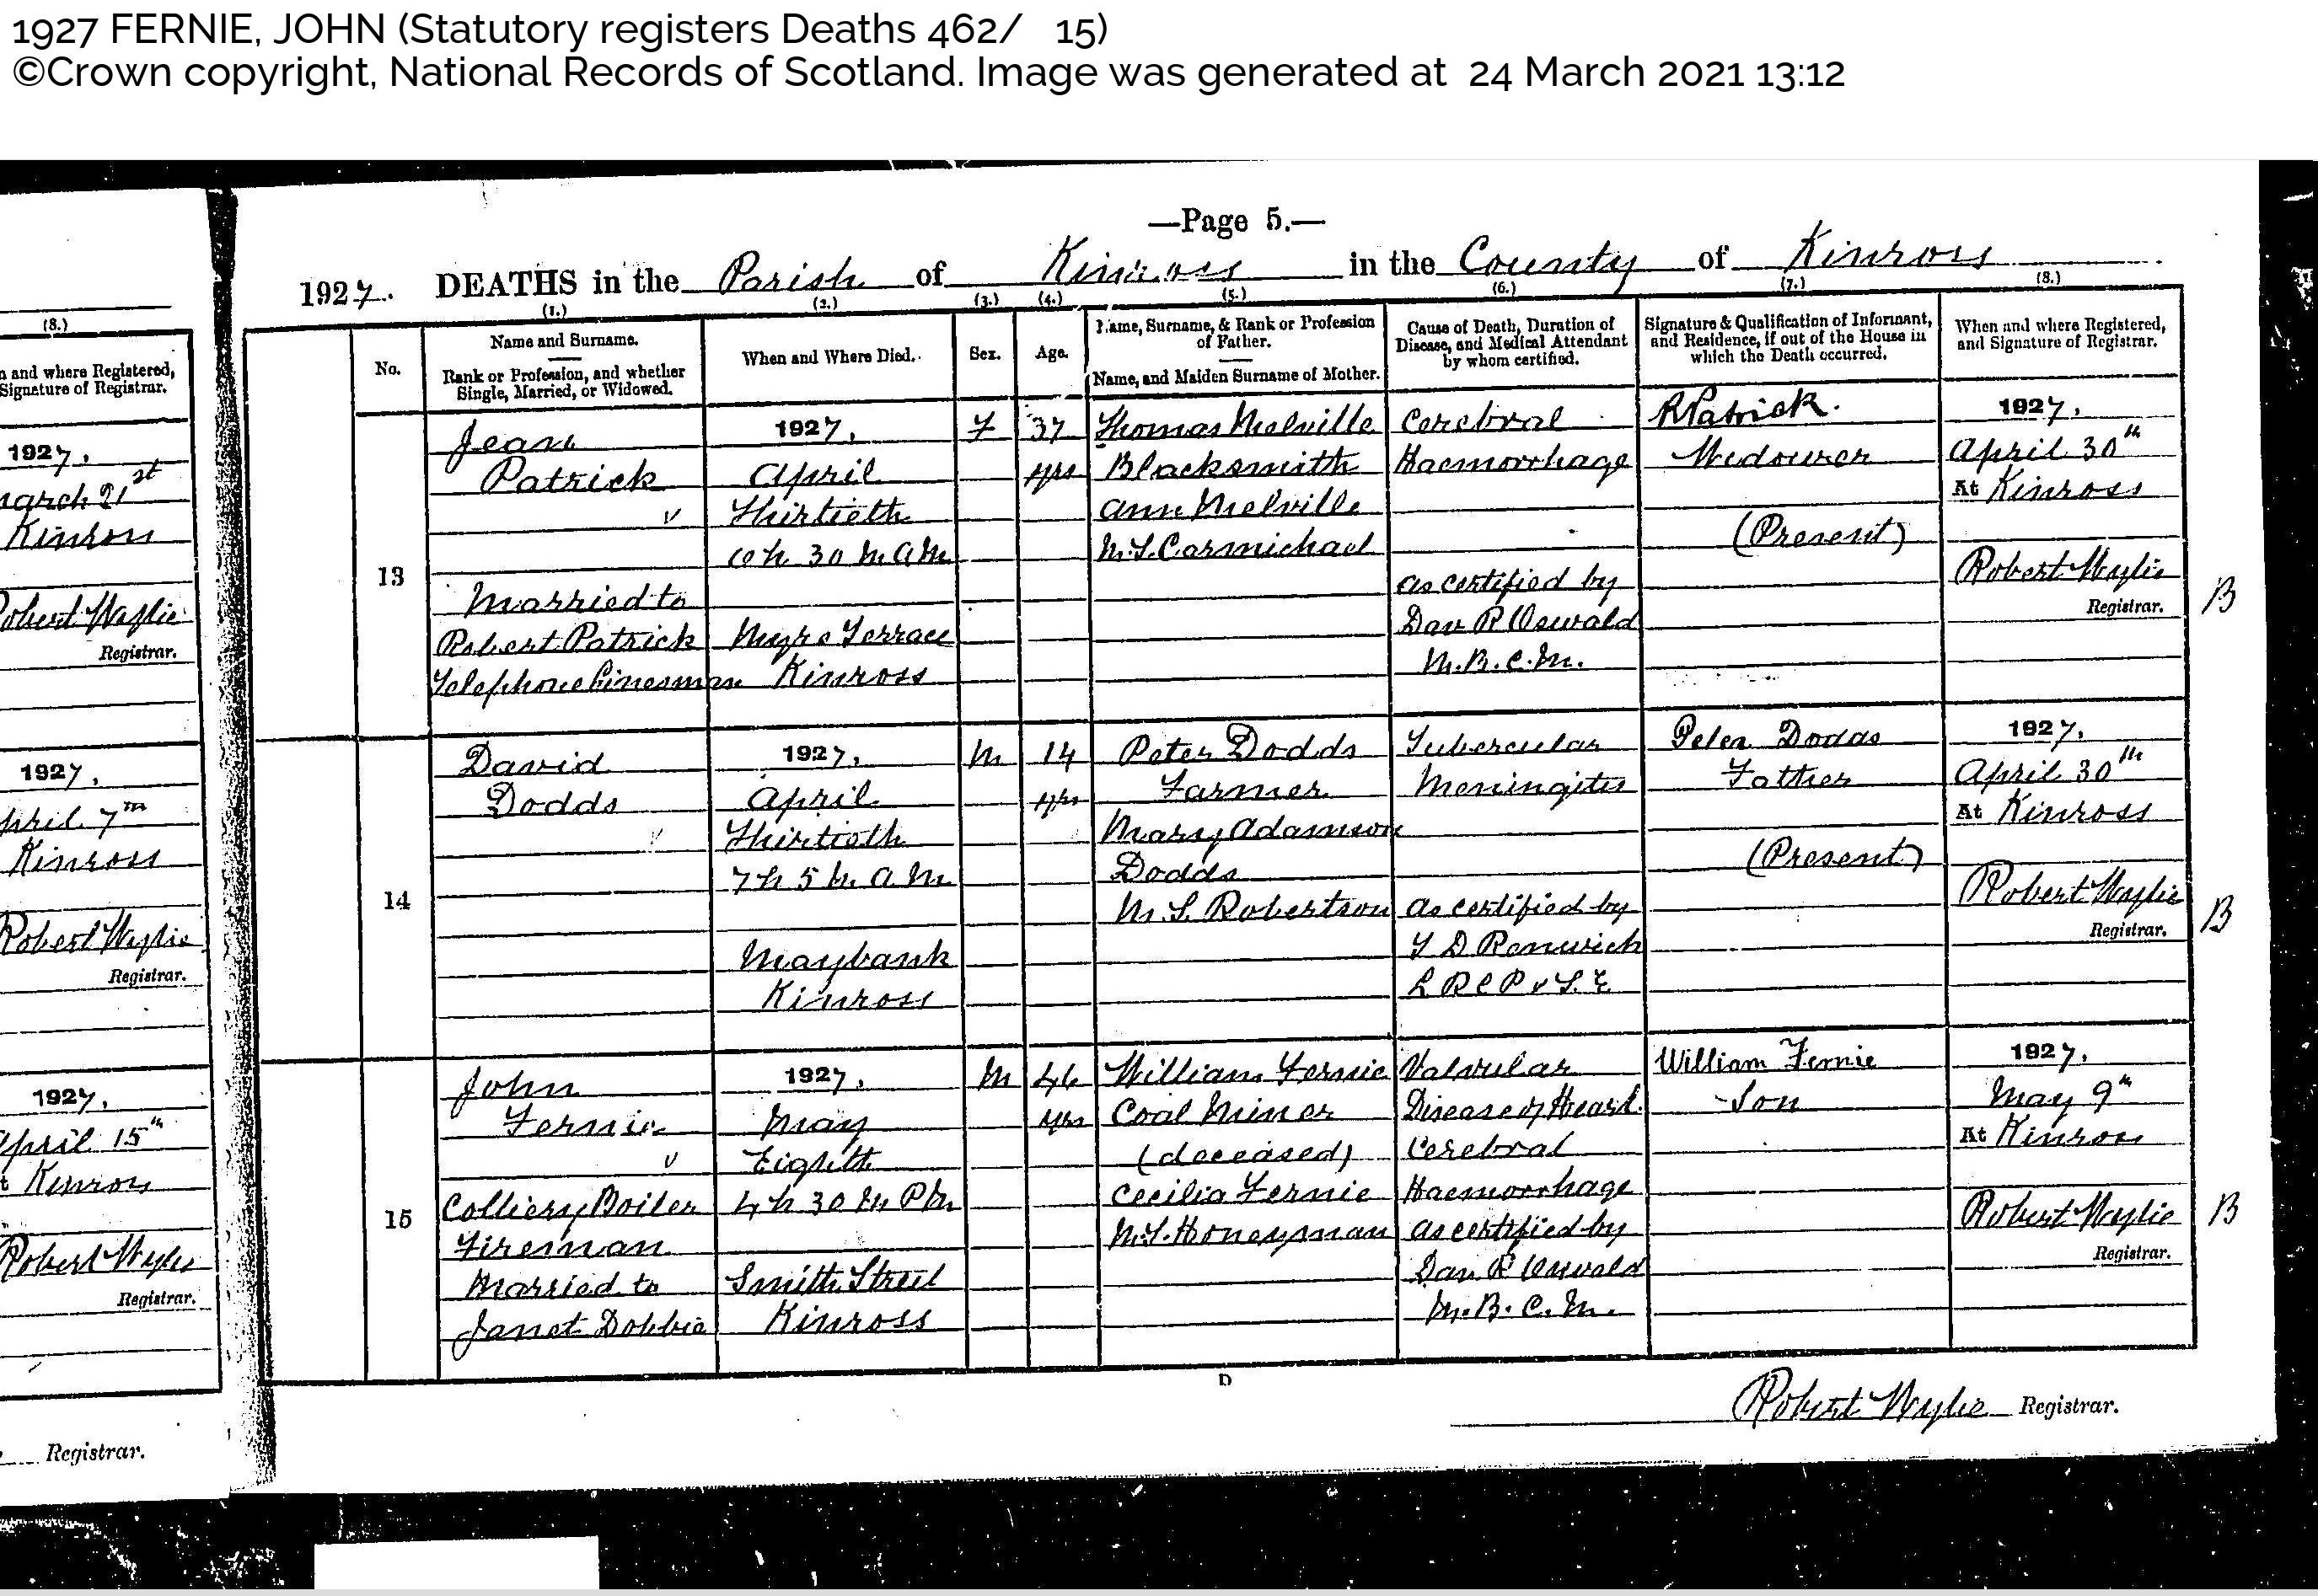 1927 FERNIE, JOHN (Statutory registers Deaths 462/ 15)
©Crown copyright, National Records of Scotland. Image was generated at 24 March 2021 13:12
(8.)
n and where Registered,
Signature of Registrar.
1927,
March 21st
Kinross
Robert Wylie
Registrar.
1927,
April 7th
Kinross
Robert Wylie
Registrar.
1927,
April 15th
t Kinross
Robert Wylie
Registrar.
Registrar.
—Page 5.—
1927. DEATHS in the Parish of Kinross in the County of Kinross
(1.) (2.) (3.) (4.) (5.) (6.) (7.) (8.)
No.
Name and Surname.
Rank or Profession, and whether
Single, Married, or Widowed.
When and Where Died.
Sex.
Age.
Name, Surname, & Rank or Profession
of Father.
Name, and Maiden Surname of Mother.
Cause of Death, Duration of
Disease, and Medical Attendant
by whom certified.
Signature & Qualification of Informant,
and Residence, if out of the House in
which the Death occurred.
When and where Registered,
and Signature of Registrar.
13
Jean
Patrick
Married to
Robert Patrick
Telephone Linesman
1927,
April
Thirtieth
10 h 30 m A M
Terrace
Kinross
F
37
yrs
Thomas Melville
Blacksmith
Ann Melville
M.S. Carmichael
Cerebral
Haemorrhage
as certified by
Dav R Oswald
M.B.C.M.
R Patrick.
Widower
(Present)
1927,
April 30th
At Kinross
Robert Wylie
Registrar.
B
14
David
Dodds
1927,
April
Thirtieth
7 h 5 m A M
Maybank
Kinross
M
14
yrs
Peter Dodds
Farmer
Mary Adamson
Dodds
M.S. Robertson
Tubercular
Meningitis
as certified by
Renwick
L R C P & S. E
Peter Dodds
Father
(Present)
1927,
April 30th
At Kinross
Robert Wylie
Registrar.
B
15
John
Fernie
Colliery Boiler
Fireman
Married to
Janet Dobbie
1927,
May
Eighth
4 h 30 m P M
Smith Street
Kinross
M
46
yrs
William Fernie
Coal Miner
(deceased)
Cecilia Fernie
M.S. Honeyman
Valvular
Disease of Heart.
Cerebral
Haemorrhage
as certified by
Dav R Oswald
M.B.C.M.
William Fernie
Son
1927,
May 9th
At Kinross
Robert Wylie
Registrar.
B
D
Robert Wylie Registrar.